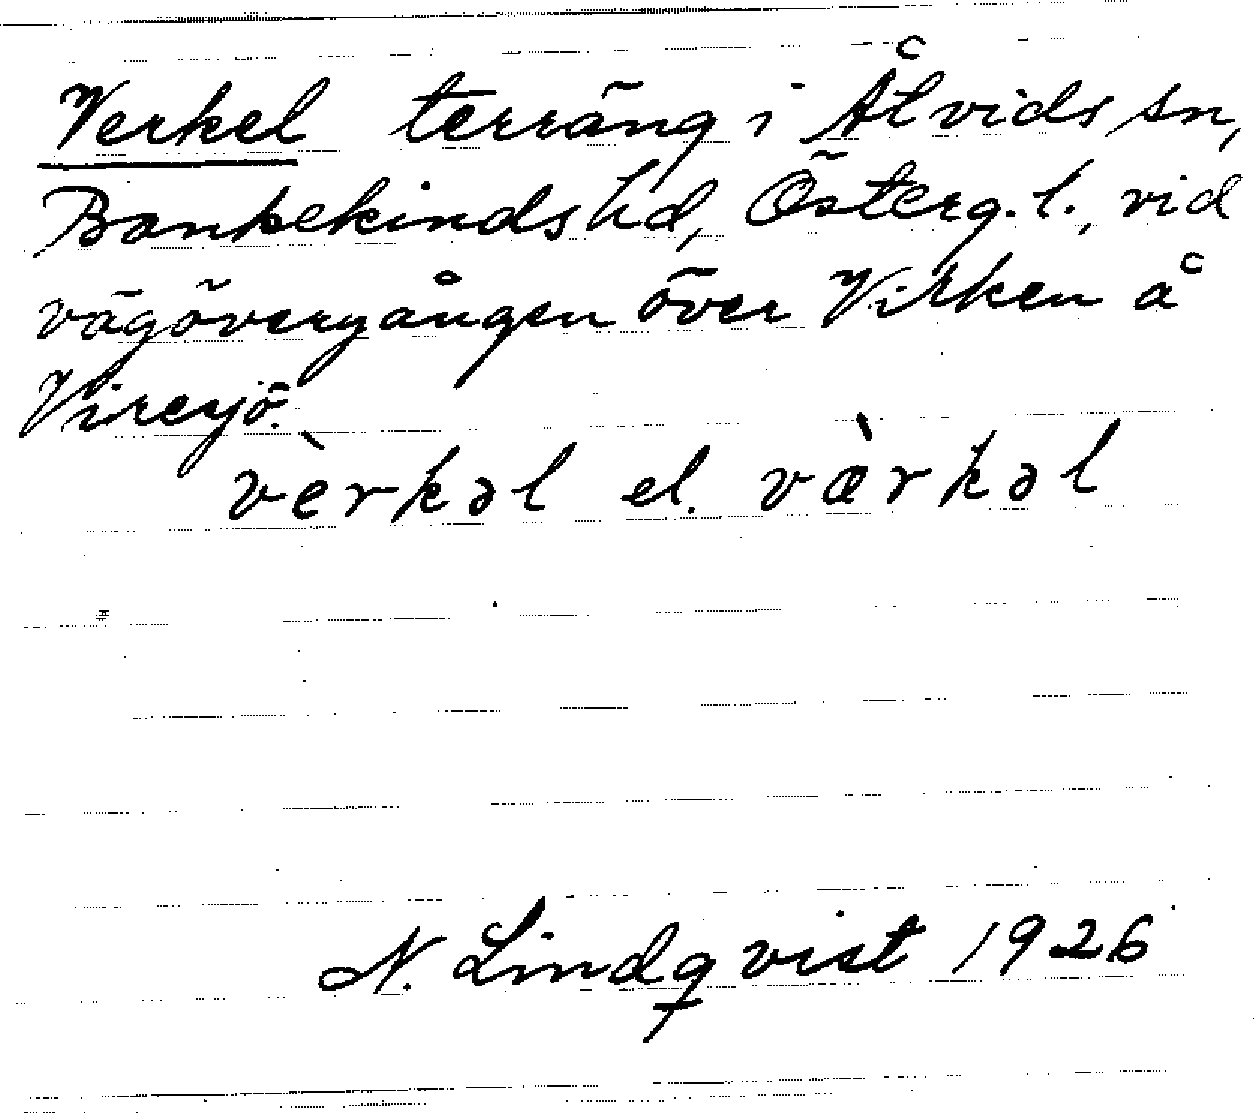 Verkel terräng i Åtvids sn,
Bankekinds hd, Österg. l., vid
vägövergången över Virken å
Viresjö.
vèrkəl el. væ̀rkəl
N. Lindqvist 1926